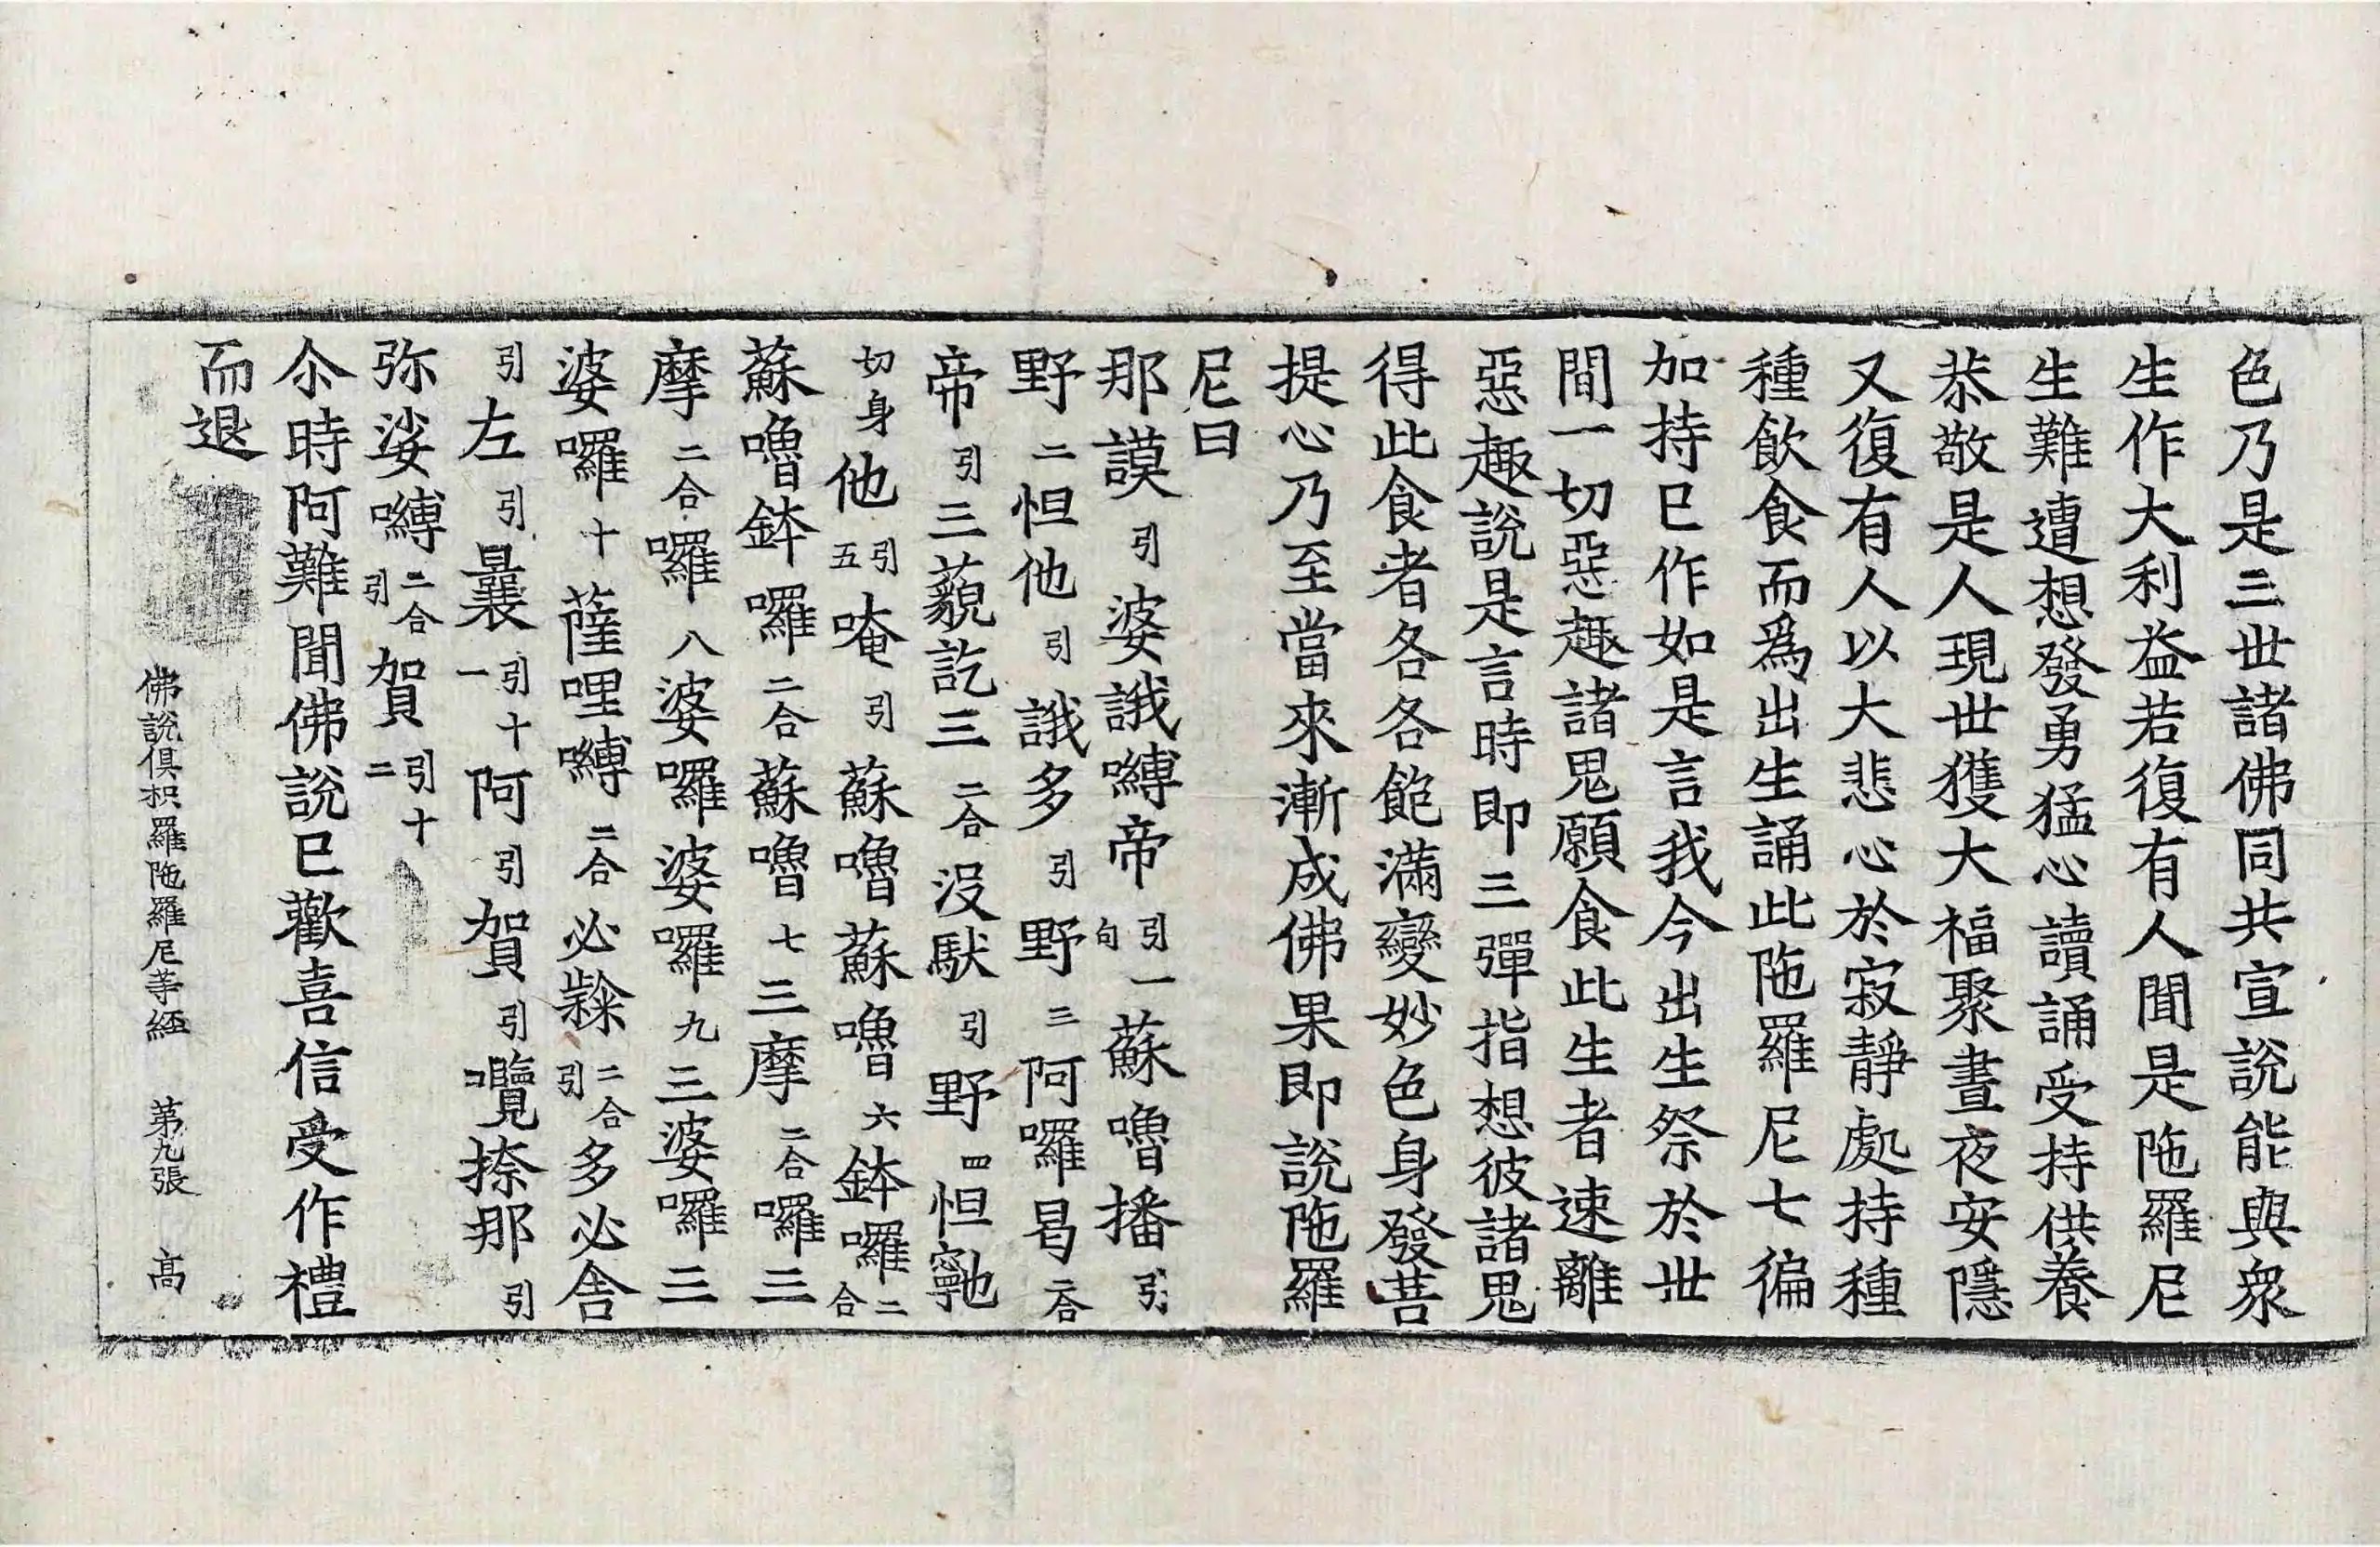 色乃是三世諸佛同共宣說能與衆
生作大利益若復有人聞是陁羅尼
生難遭想發勇猛心讀誦受持供養
恭敬是人現世獲大福聚晝夜安隱
又復有人以大悲心於寂靜處持種
種飲食而爲出生誦此陁羅尼七徧
加持已作如是言我今出生祭於世
間一切惡趣諸鬼願食此生者速離
惡趣說是言時即三彈指想彼諸鬼
得此食者各各飽滿變妙色身發菩
提心乃至當來漸成佛果即說陁羅
尼曰
那謨引婆誐嚩帝引句一蘇嚕播引
野二怛他引誐多引野三阿囉曷二合
帝引三藐訖三二合沒馱引野四怛𩕳
切身他引五唵引蘇嚕蘇嚕六鉢囉二合
蘇嚕鉢囉二合蘇嚕七三摩二合囉三
摩二合囉八婆囉婆囉九三婆囉三
婆囉十薩哩嚩二合必隸二合引多必舍
引左引曩引十一阿引賀引囕捺那引
弥娑嚩二合引賀引十二
尒時阿難聞佛說已歡喜信受作禮
而退
佛說俱枳羅陁羅尼等經 第九張 髙